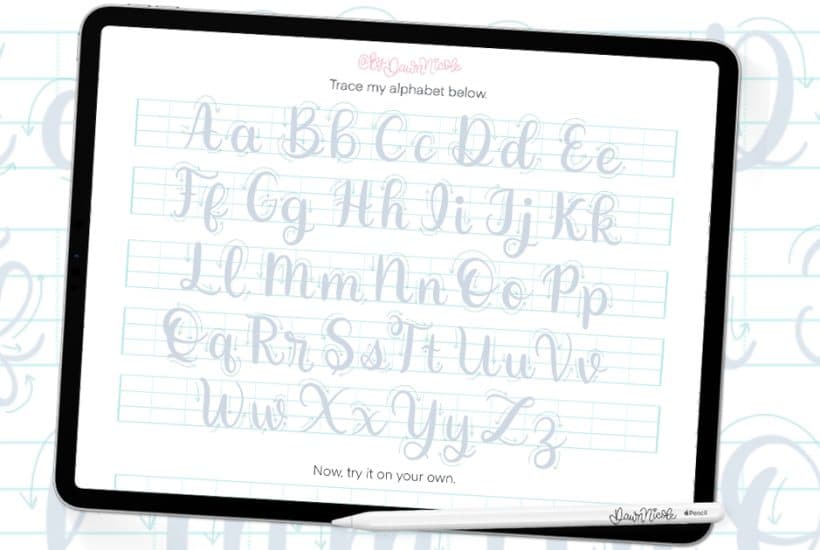 @byDawnNicole
Trace my alphabet below.
Aa Bb Cc Dd Ee
Ff Gg Hh Ii Jj Kk
Ll Mm Nn Oo Pp
Qq Rr Ss Tt Uu Vv
Ww Xx Yy Zz
Now, try it on your own.
DawnNicole Pencil